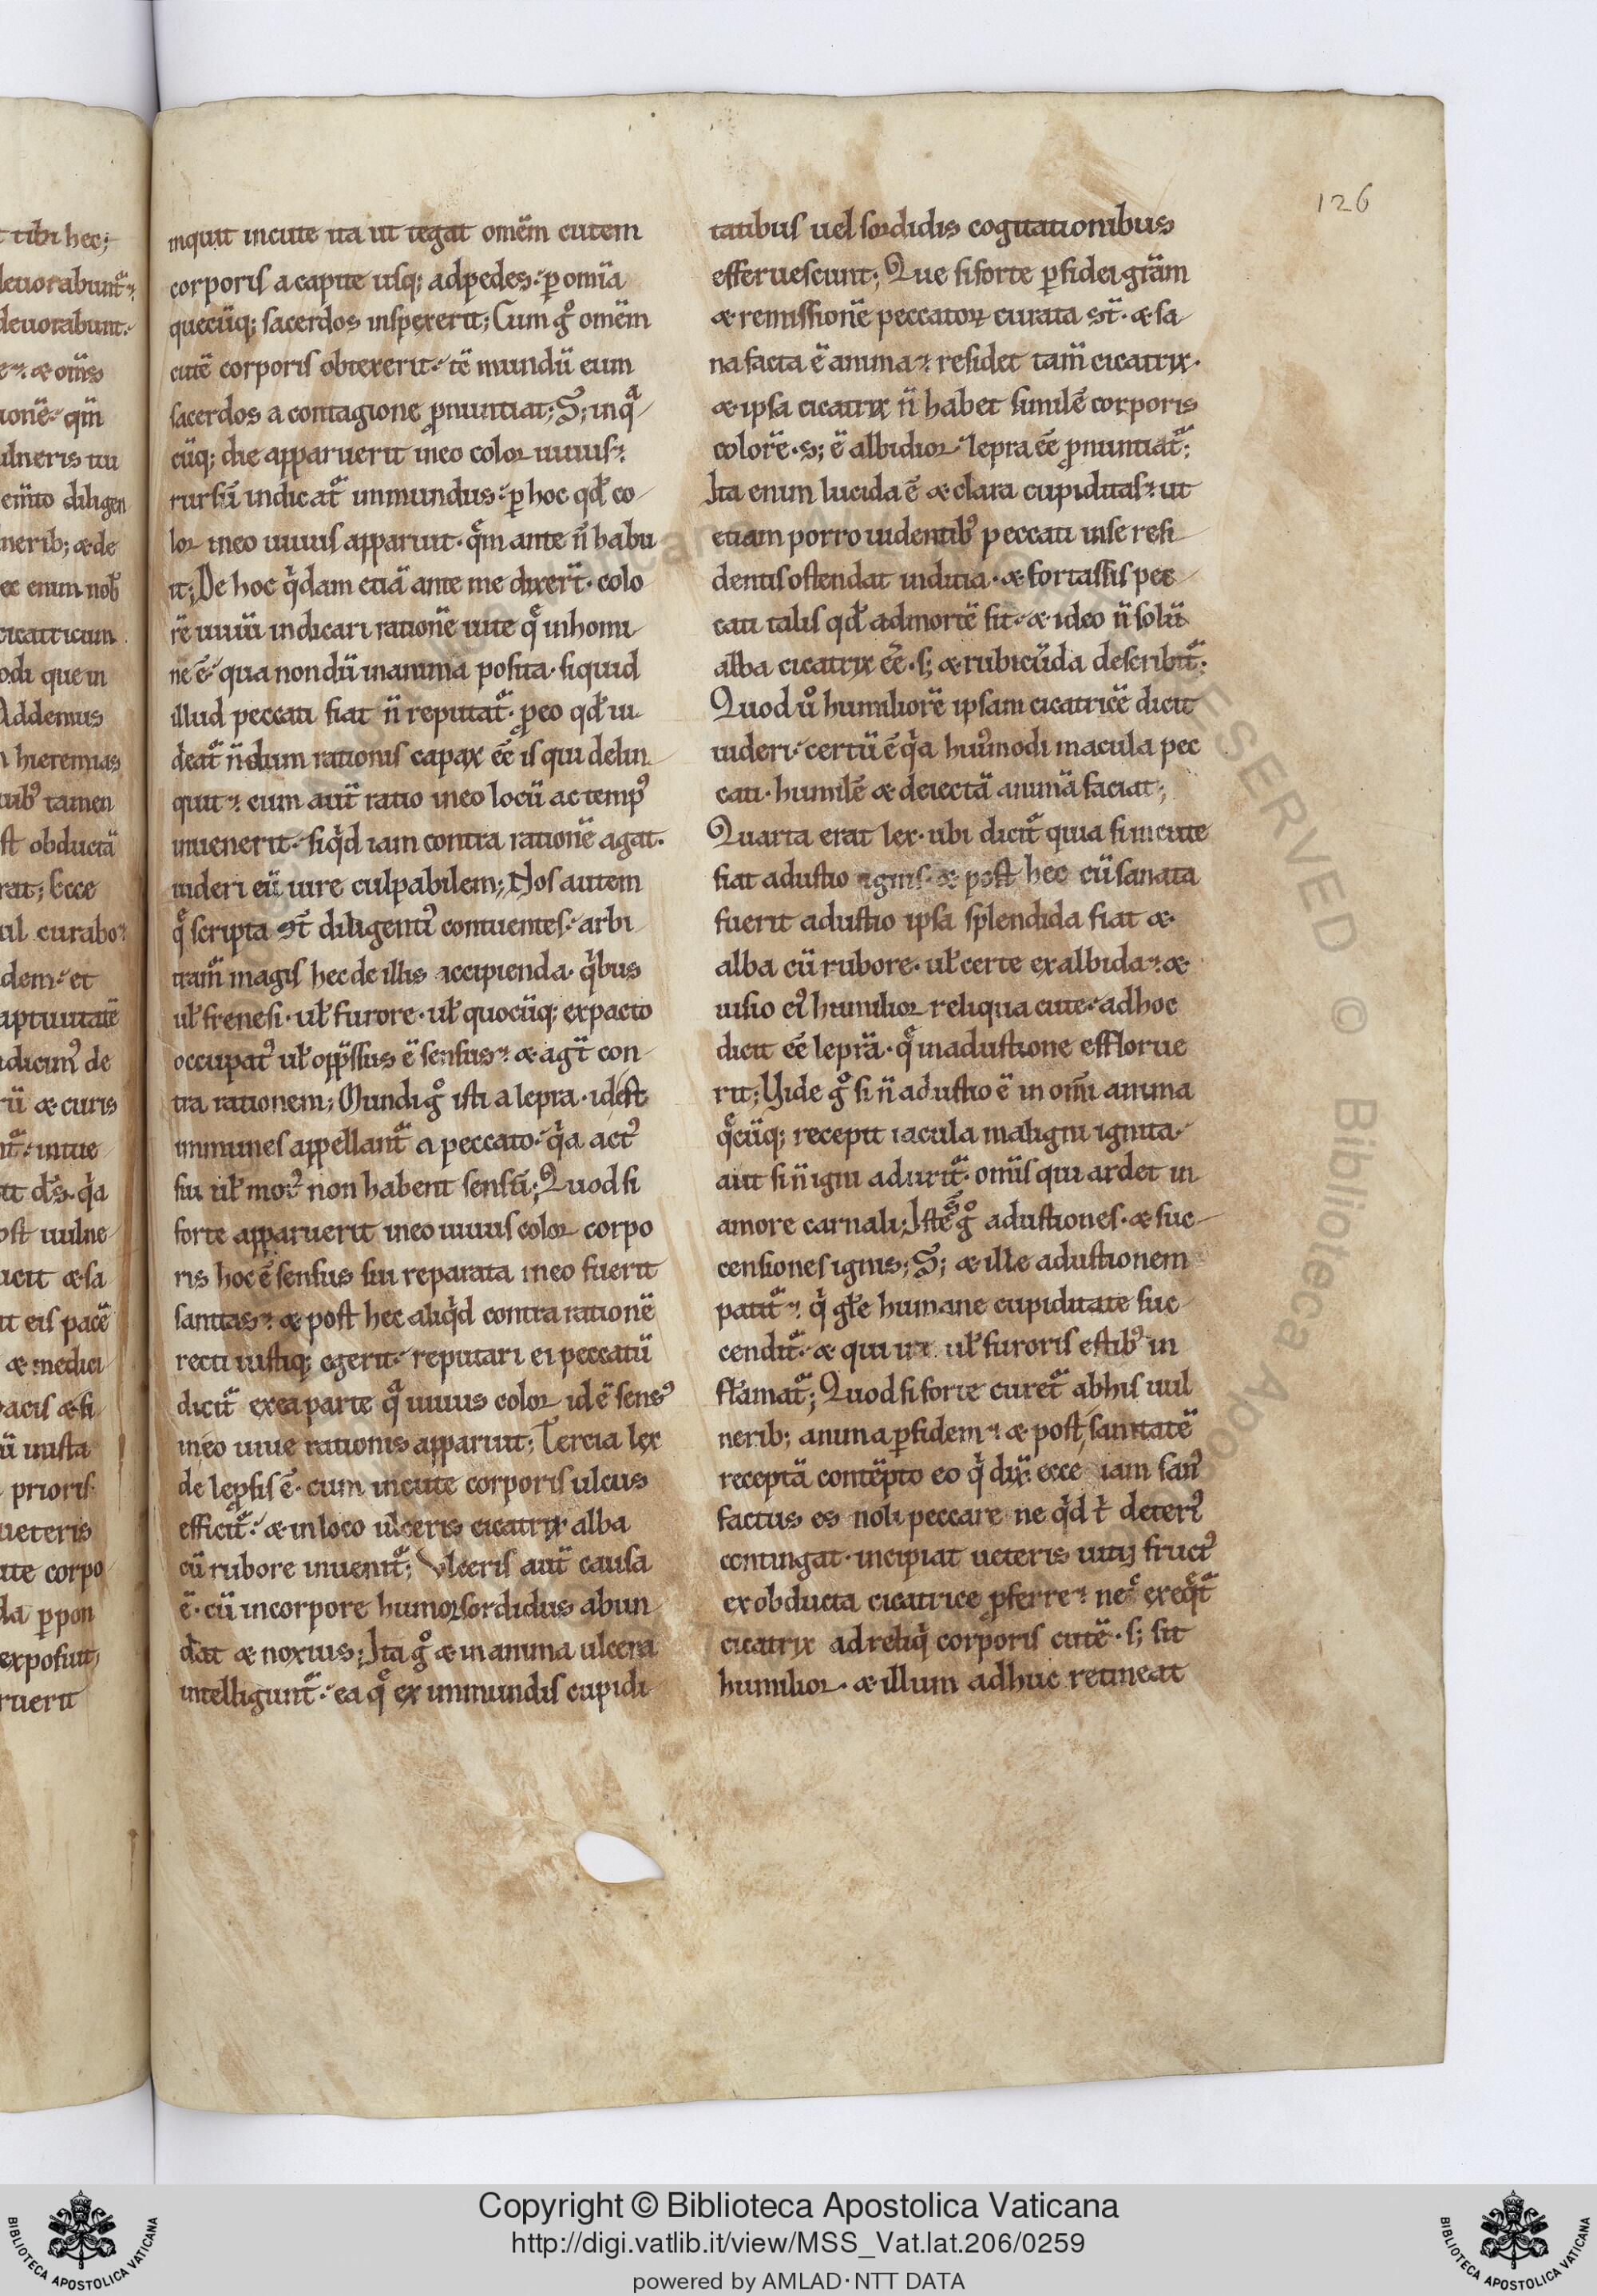 126
inquit in cute ita ut tegat omē̄m cutem
corporis a capite usq; ad pedes. ꝑ omīa
quecūq; sacerdos inspexerit; Cum gͦ omēm
cutē corporis obtexerit. tē mundū eum
sacerdos a contagione ꝓnuntiat; S; in qͣ
cūq; die apparuerit in eo color uiuus.
rursū indicatᷣ inmundus. ꝑ hoc qđ co
lor in eo uiuus apparuit. quē ante n̄ habu
it; De hoc qͥdam etiā ante me dixer̄t. colo
rē uiuū indicari rationē uite q̨ in homi
ne ē. qua nondū in anima posita. si quid
illud peccati fiat n̄ reputatᷣ. ꝓ eo qđ ui
deatᷣ n̄dum rationis capax eē̄ is qui delin
quit. cum aut̄ ratio in eo locū ac temp᾿
inuenerit. si qͥd iam contra rationē agat.
uideri eū iure culpabilem; Nos autem
q̨ scripta st̄ diligenti᾿ contuentes. arbi
tramᷣ magis hec de illis accipienda. qͥbus
ul̄ frenesi. ul̄ furore. ul̄ quocūq; ex pacto
occupat᾿ ul̄ opp̄ssus ē sensus. æ agt̄ con
tra rationem; Mundi gͦ isti a lepra. id est
immunes appellantᷣ a peccato. qͥa act᾿
sui ul̄ mot᾿ non habent sensū; Quod si
forte apparuerit in eo uiuus color corpo
ris hoc ē sensus sui reparata in eo fuerit
sanitas. æ post hec aliqͥd contra rationē
recti iustiq; egerit. reputari ei peccatū
dicitᷣ ex ea parte qͣ uiuus color id ē sens᾿
in eo uiue rationis apparuit; Tercia lex
de lep̄sis ē. cum in cute corporis ulcus
efficitᷣ. æ in loco ulceris cicatrix alba
cū rubore inuenitᷣ; Vlceris aut̄ causa
ē. cū in corpore humor sordidus abun
dat æ noxius; Ita gͦ æ in anima ulcera
intelliguntᷣ. ea q̨ ex inmundis cupidi
tatibus uel sordidis cogitationibus
efferuescunt; Que si forte ꝑ fidei grām
æ remissionē peccatoꝝ curata st̄. æ sa
na facta ē anima. residet tam̄ cicatrix.
æ ipsa cicatrix n̄ habet similē corporis
colorē. s; ē albidior. lepra eē̄ ꝓnuntiatᷣ;
Ita enim lucida ē æ clara cupiditas. ut
etiam porro uidentib᾿ peccati in se resi
dentis ostendat inditia. æ fortassis pec
cati talis qđ ad mortē sit. æ ideo n̄ solū
alba cicatrix eē̄. s; æ rubicūda describitᷣ;
Quod u͛ humiliorē ipsam cicatricē dicit
uideri. certū ē qͥa hui᾿modi macula pec
cati. humilē æ deiectā animā faciat;
Quarta erat lex. ubi dicitᷣ quia si in cute
fiat adustio ignis. æ post hec cū sanata
fuerit adustio ipsa splendida fiat æ
alba cū rubore. ul̄ certe exalbida. æ
uisio ei᾿ humilior reliqua cute. adhoc
dicit eē̄ leprā. q̨ in adustione efflorue
rit; Vide gͦ si n̄ adustio ē in omī anima
q̨cūq; recepit iacula maligni ignita.
aut si n̄ igni aduritᷣ. omīs qui ardet in
amore carnali; Iste st̄ gͦ adustiones. æ suc
censiones ignis; S; æ ille adustionem
patitᷣ. qͥ gl̄e humane cupiditate suc
cenditᷣ. æ qui ire ul̄ furoris estib᾿ in
flāmatᷣ; Quod si forte curetᷣ ab his uul
nerib; anima ꝑ fidem. æ post sanitatē
receptā contēpto eo qͥ dix̄. ecce iam san᾿
factus es noli peccare ne qͥd tͥ deteri᾿
contingat. incipiat ueteris uitij fruct᾿
ex obducta cicatrice ꝓferre. nec exeqͤtᷣ
cicatrix ad reliqͣ corporis cutē. s; sit
humilior. æ illum adhuc retineat
Copyright © Biblioteca Apostolica Vaticana
http://digi.vatlib.it/view/MSS_Vat.lat.206/0259
powered by AMLAD·NTT DATA
BIBLIOTECA APOSTOLICA VATICANA
BIBLIOTECA APOSTOLICA VATICANA